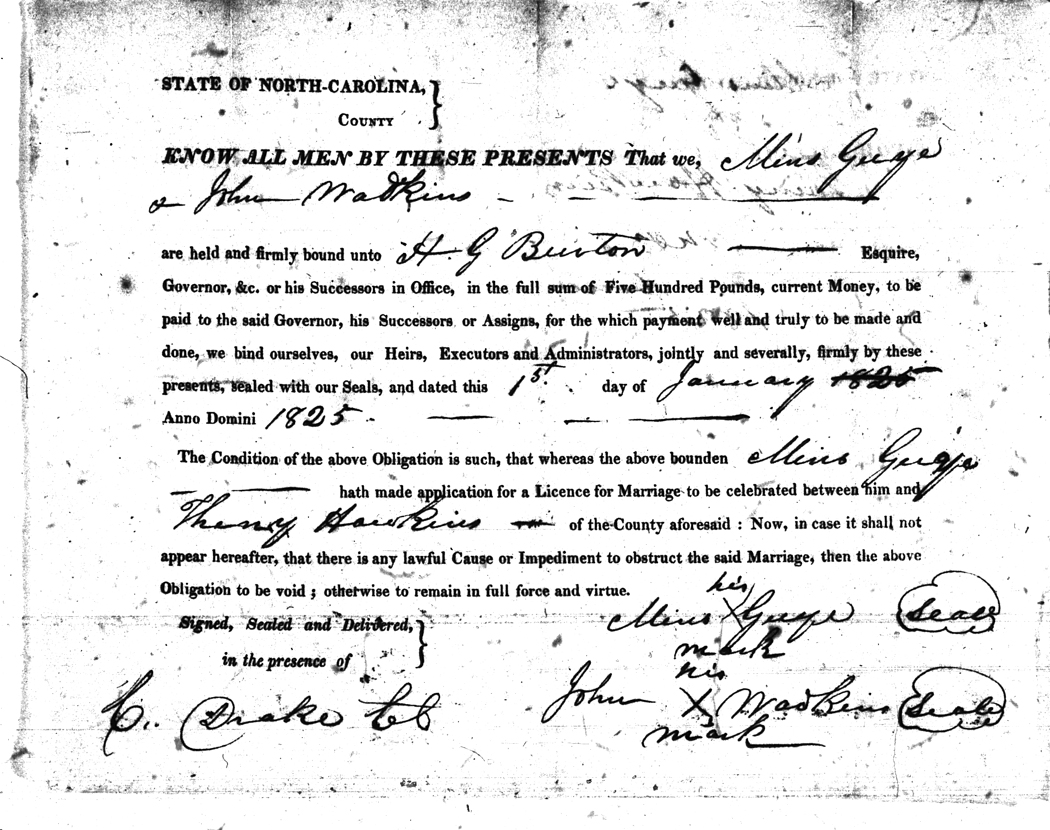 STATE OF NORTH-CAROLINA, }
COUNTY
KNOW ALL MEN BY THESE PRESENTS That we, Mins Guye
& John Wadkins
are held and firmly bound unto H G Burton Esquire,
Governor, &c. or his Successors in Office, in the full sum of Five Hundred Pounds, current Money, to be
paid to the said Governor, his Successors or Assigns, for the which payment well and truly to be made and
done, we bind ourselves, our Heirs, Executors and Administrators, jointly and severally, firmly by these
presents, sealed with our Seals, and dated this 1st. day of January 1825
Anno Domini 1825
The Condition of the above Obligation is such, that whereas the above bounden Mins Guye
hath made application for a Licence for Marriage to be celebrated between him and
Theny Hawkins of the County aforesaid : Now, in case it shall not
appear hereafter, that there is any lawful Cause or Impediment to obstruct the said Marriage, then the above
Obligation to be void ; otherwise to remain in full force and virtue.
his
Mins X Guye Seale
mark
Signed, Sealed and Delivered, }
in the presence of
his
John X Wadkins Seale
mark
C. Drake